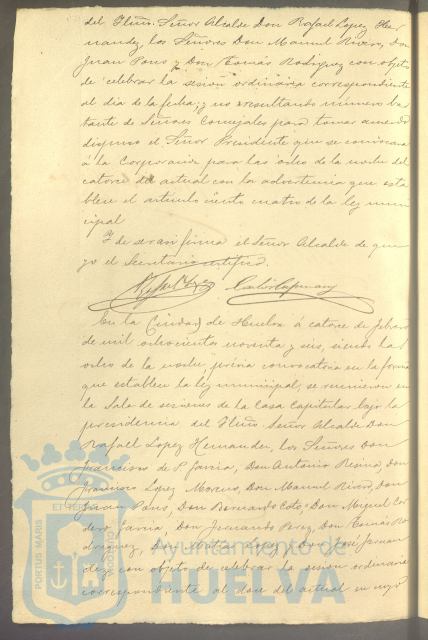 del Iltmo. Señor Alcalde Don Rafael Lopez Her-
nandez, los Señores Don Manuel Rivero, Don
Juan Pons y Don Tomás Rodriguez con objeto
de celebrar la sesion ordinaria correspondiente
al dia de la fecha; y no resultando número bas
tante de Señores Concejales para tomar acuerdo
dispuso el Señor Presidente que se convocara
á la Corporacion para las ocho de la noche del
catorce del actual con la advertencia que esta
blece el articulo ciento cuatro de la ley muni
cipal
Y de ser asi firma el Señor Alcalde de que
yo el Secretario certifico.
En la Ciudad de Huelva á catorce de febrero
de mil ochocientos noventa y seis, siendo las
ocho de la noche, previa convocatoria en la forma
que establece la ley municipal, se reunieron en
la Sala de sesiones de la Casa Capitular bajo la
presidencia del Iltmo. Señor Alcalde Don
Rafael Lopez Hernandez, los Señores Don
Francisco de P. Garcia, Don Antonio Resina, Don
Francisco Lopez Moreno, Don Manuel Rivero, Don
Juan Pons, Don Bernardo Coto, Don Miguel Cor
dero Garcia, Don Fernando Perez, Don Tomás Ro
driguez, Don Lopez y Don José Fernan
dez con objeto de celebrar la sesion ordinaria
correspondiente al doce del actual en cuyo
PORTUS MARIS
ET TERRAE
CUSTODIA
Ayuntamiento de
HUELVA